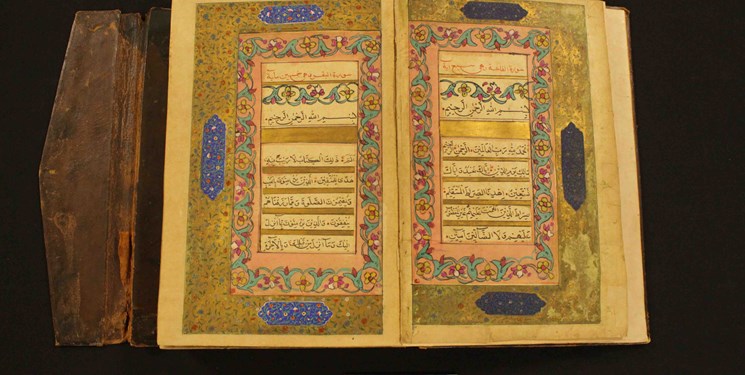 سورة الفاتحة وهي سبع
بسم الله الرحمن الرحيم
الحمد لله رب العالمين الرحمن الرحيم
نعبد واياك
نستعين اهدنا الصراط المستقيم
صراط الذين انعمت عليهم غير
عليهم ولا الضالين امين
سورة البقرة
بسم الله الرحمن الرحيم
الم ذلك الكتاب لا ريب فيه
هدى للمتقين الذين يؤمنون بالغيب
ويقيمون الصلوة ومما رزقناهم
ينفقون والذين يؤمنون بما انزل
اليك وما انزل من قبلك وبالاخرة